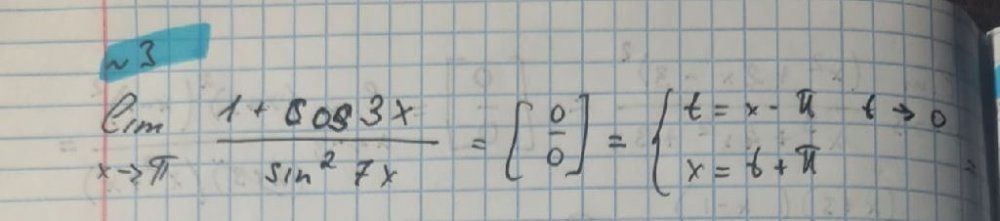 ~3
lim x→π (1 + cos 3x)/(sin² 7x) = [0/0] = { t = x - π   t → 0
x = t + π =